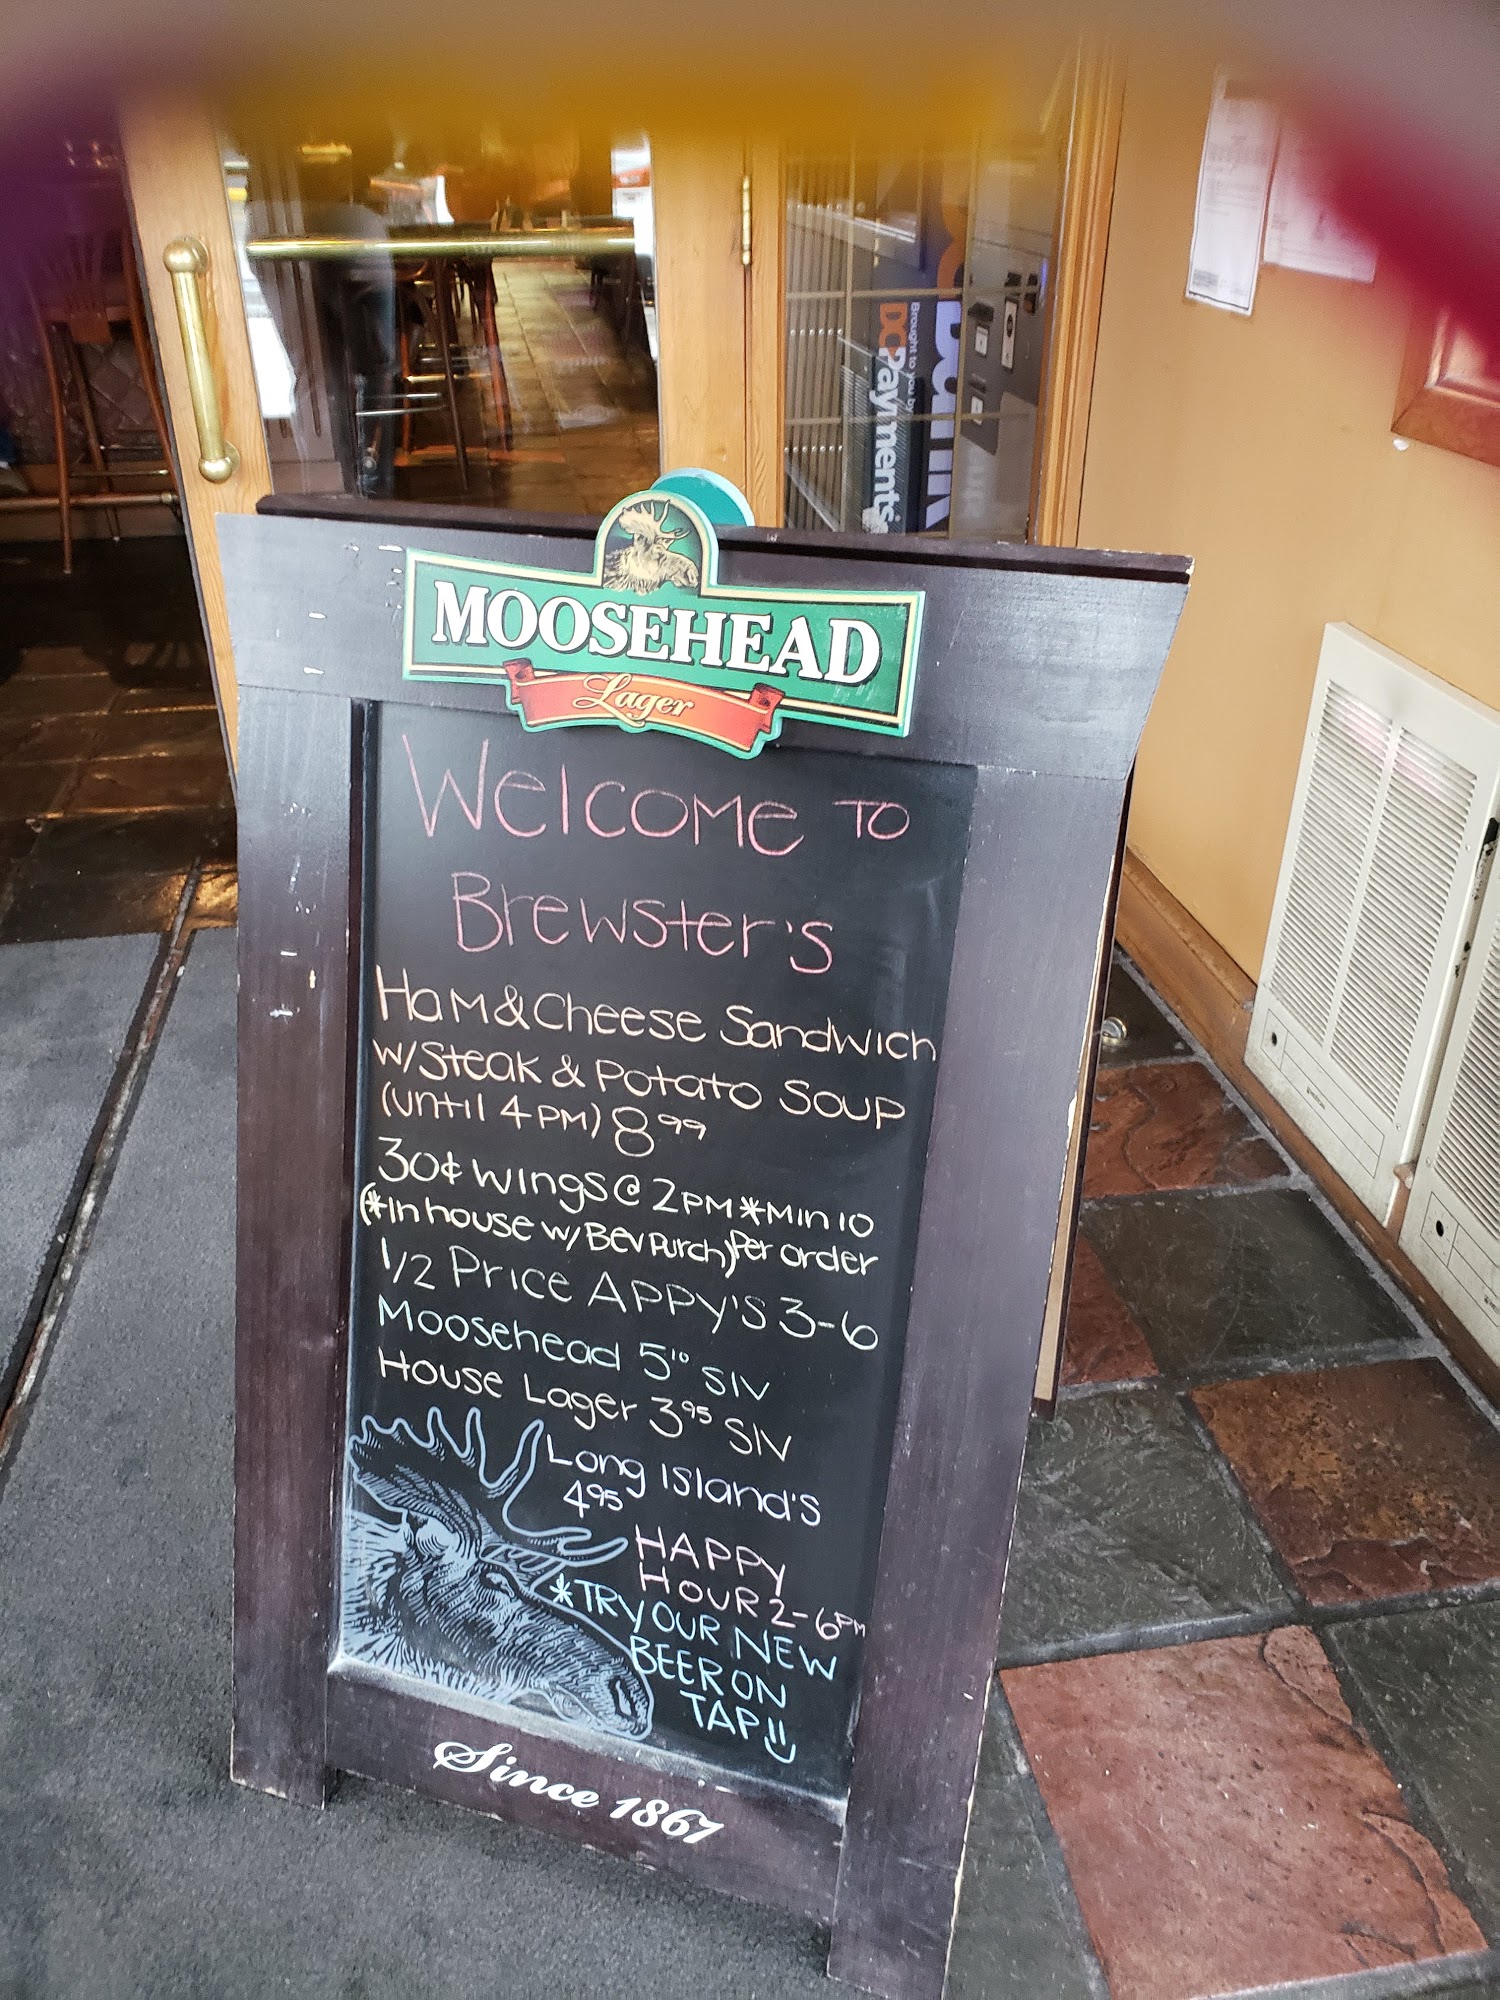 MOOSEHEAD
Lager
Welcome to
Brewster's
Ham & Cheese Sandwich
w/ Steak & Potato Soup
(until 4 PM) 8 99
30¢ wings @ 2 PM *Min 10
(*In house w/ Bev Purch) Per order
1/2 Price Appy's 3-6
Moosehead 5 10 SlV
House Lager 3 95 SlV
Long Island's
4 95
HAPPY
HOUR 2-6 PM
*TRY OUR NEW
BEER ON
TAP!!
Since 1867
Brought to you by
DCPayments